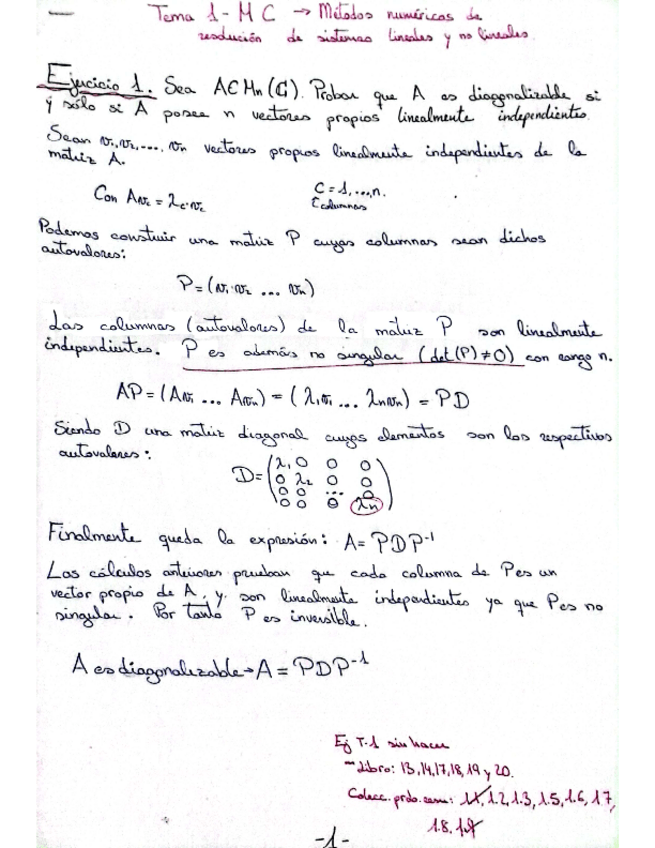 Tema 1 - M C → Métodos numéricos de
resolución de sistemas lineales y no lineales.
Ejercicio 1. Sea A∈Mn(ℂ). Probar que A es diagonalizable si
y sólo si A posee n vectores propios linealmente independientes.
Sean v₁, v₂, ..., vn vectores propios linealmente independientes de la
matriz A.
Con Avc = λc·vc C = 1, ..., n.
columnas
Podemos construir una matriz P cuyas columnas sean dichos
autovalores:
P = (v₁ · v₂ ... vn)
Las columnas (autovalores) de la matriz P son linealmente
independientes. P es además no singular (det(P) ≠ 0) con rango n.
AP = (Av₁ ... Avn) = (λ₁v₁ ... λnvn) = PD
Siendo D una matriz diagonal cuyos elementos son los respectivos
autovalores:
D = (λ₁ 0 0 0
0 λ₂ 0 0
0 0 ... 0
0 0 0 λn)
Finalmente queda la expresión: A = PDP⁻¹
Los cálculos anteriores prueban que cada columna de P es un
vector propio de A, y son linealmente independientes ya que P es no
singular. Por tanto P es inversible.
A es diagonalizable → A = PDP⁻¹
Ej T-1 sin hacer
- Libro: 13, 14, 17, 18, 19 y 20.
Colecc. prob. : 1.1, 1.2, 1.3, 1.5, 1.6, 1.7,
1.8,
-1-